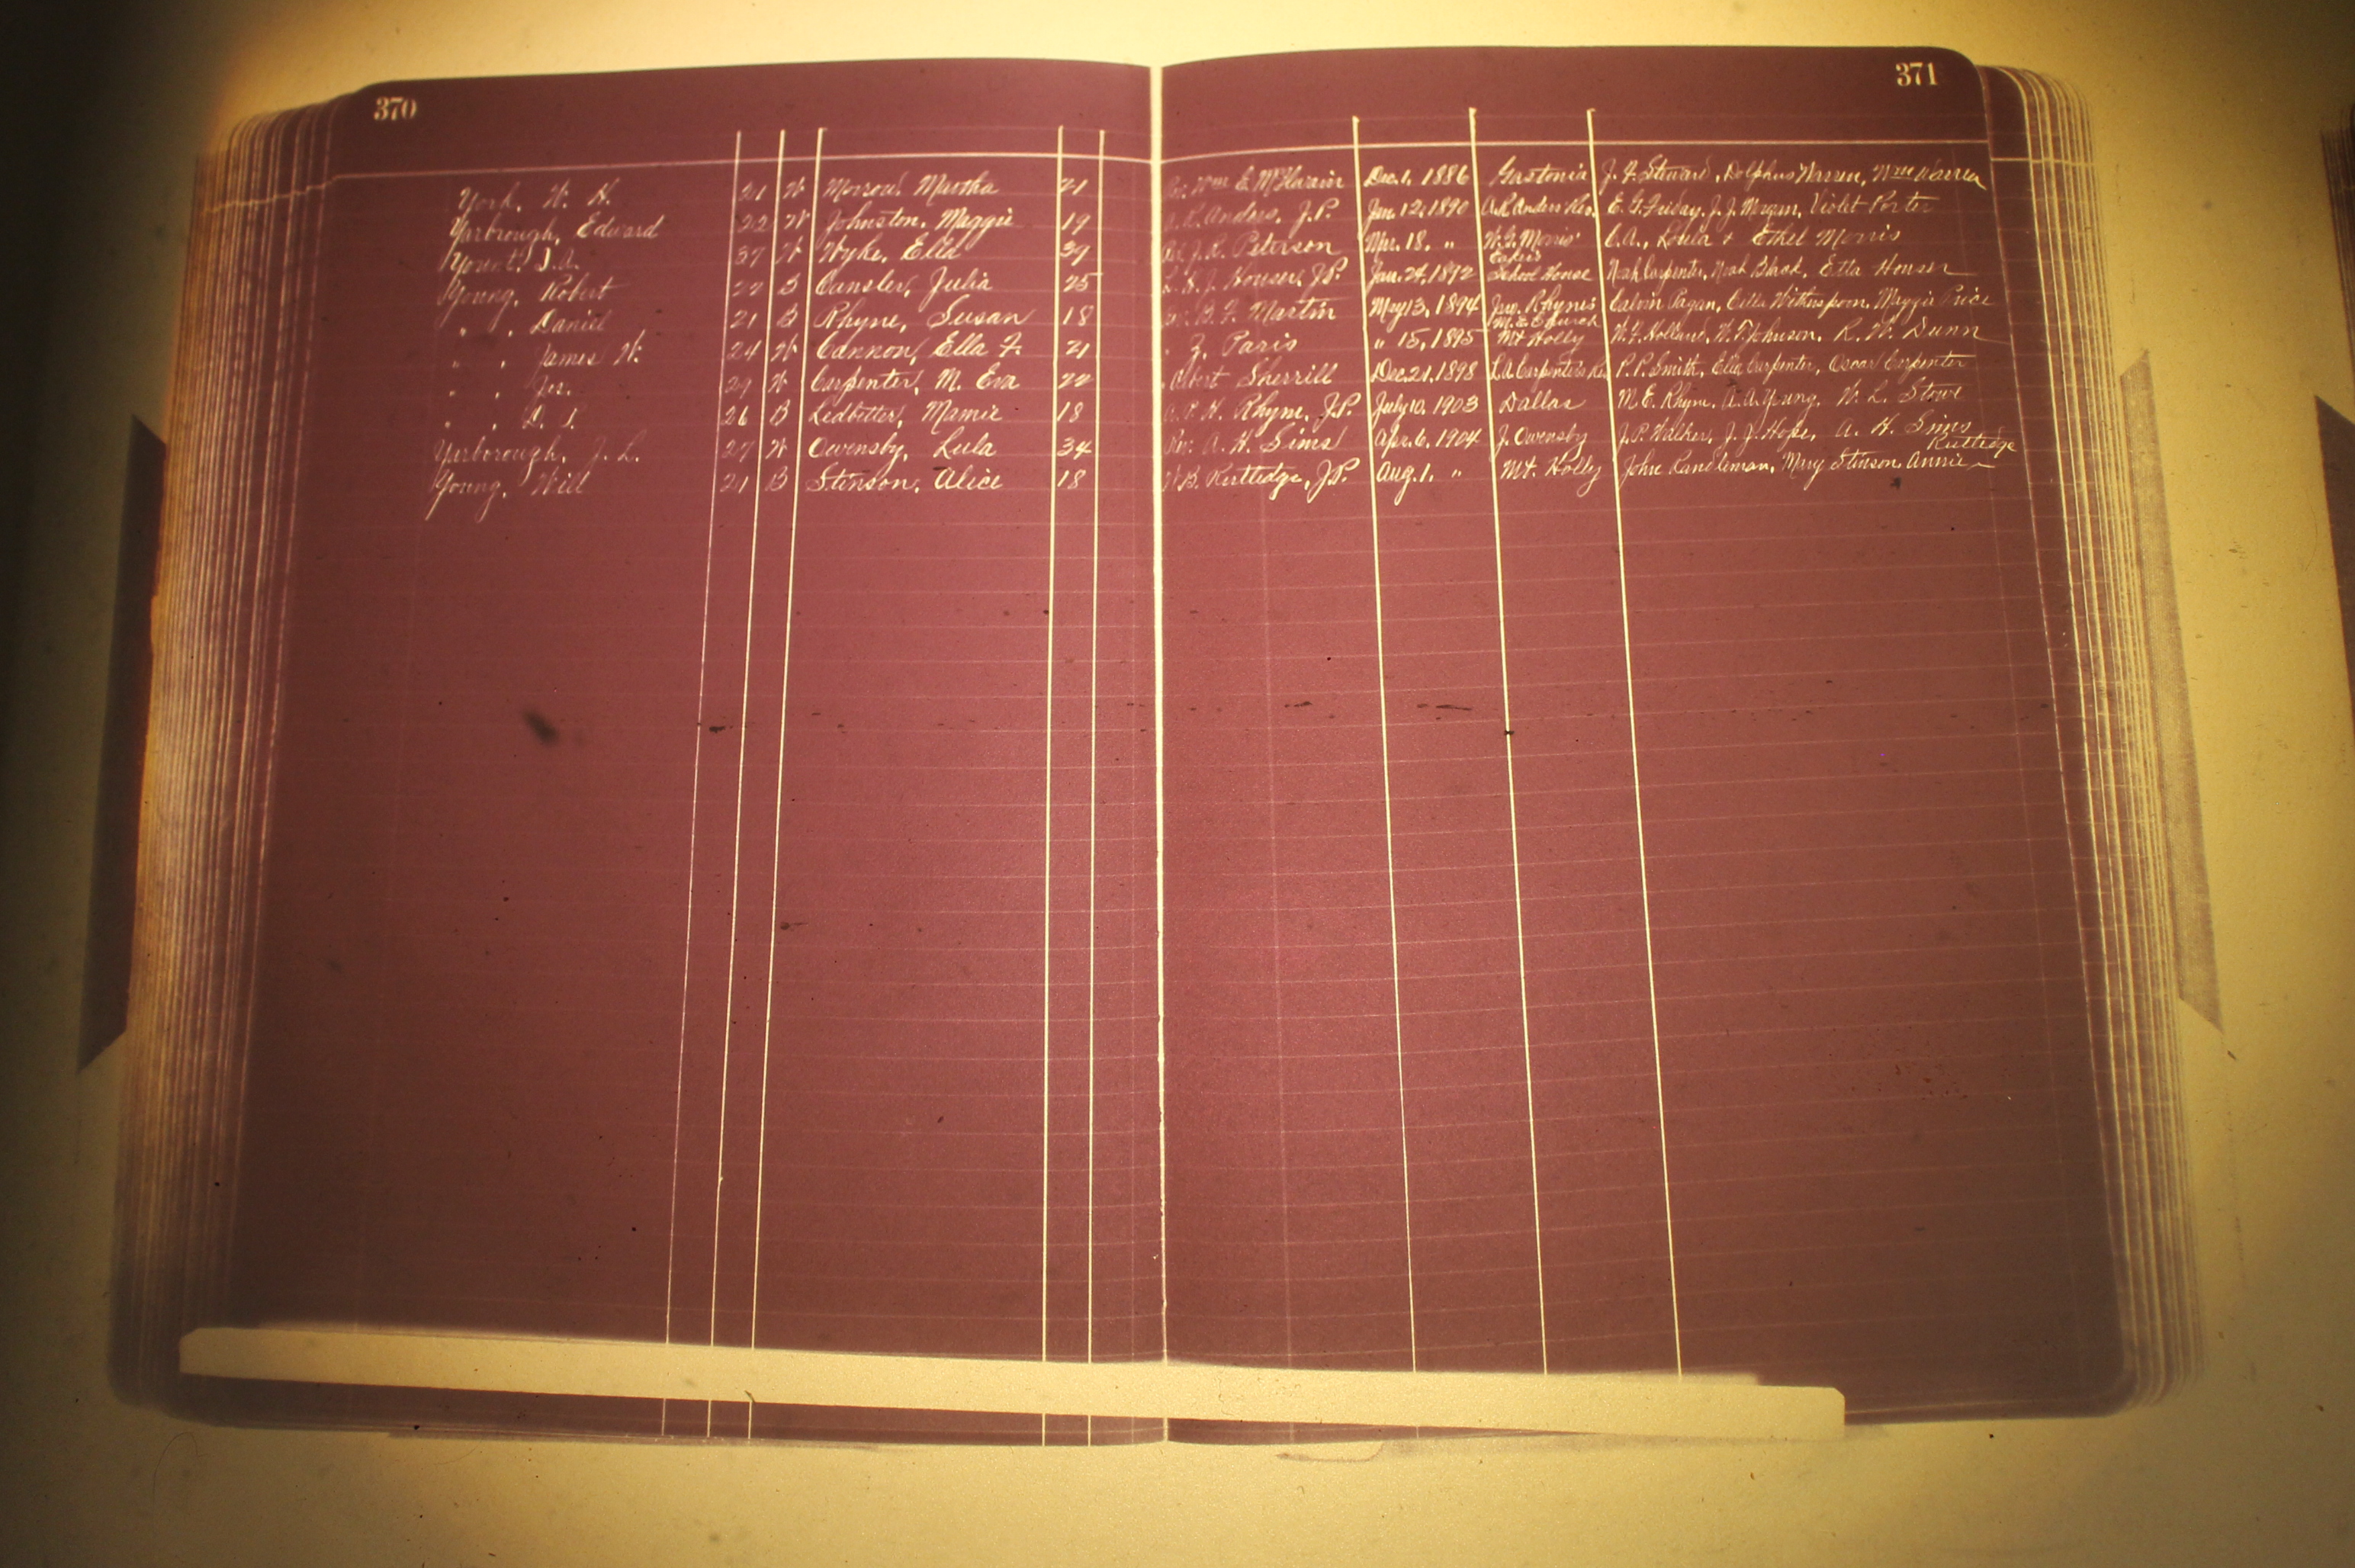 370 371
York, W. H. 21 W Morrow, Martha 21 Rev. Wm E. McIlwain Dec. 1, 1886 Gastonia J. F. Steward, Dolphus Warren, Wm Warren
Yarbrough, Edward 22 W Johnston, Maggie 19 A. R. Anders, J.P. Jan. 12, 1890 A.R. Anders Res. E. G. Friday, J. J. Morgan, Violet Porter
Yount, J.A. 37 W Wyke, Ella 39 Rev. J. R. Peterson Mar. 18, " W. G. Morris' C.A., Loula & Ethel Morris
Young, Robert 22 B Cansler, Julia 25 L. H. J. Houser, J.P. Jan. 24, 1892 School House Noah Carpenter, Noah Black, Etta Houser
" , Daniel 21 B Rhyne, Susan 18 B. F. Martin May 13, 1894 Jno. Rhyne's Calvin Pagan, Witherspoon, Maggie Price
" , James W. 24 W Cannon, Ella F. 21 Z. Paris " 15, 1895 M.E. Church Mt Holly W. F. Holland, W. T. Johnson, R. W. Dunn
" , Jer. 29 W Carpenter, M. Eva 22 Albert Sherrill Dec. 21, 1898 L.A. Carpenter's Res. P. P. Smith, Ella Carpenter, Oscar Carpenter
" , 26 B Ledbetter, Mamie 18 A. P. H. Rhyne, J.P. July 10, 1903 Dallas M. E. Rhyne, A. A. Young, W. L. Stowe
Yarborough, J. L. 27 W Owensby, Lula 34 Rev. A. H. Sims Apr. 6, 1904 J. Owensby J. P. Walker, J. J. Hope, A. H. Sims
Young, Will 21 B Stinson, Alice 18 W.B. Rutledge, J.P. Aug. 1, " Mt. Holly John Randleman, Mary Stinson, Annie Rutledge